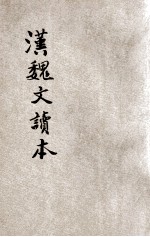 漢魏文讀本